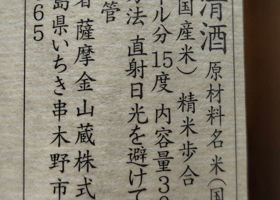 清酒 原材料名 米(国
国産米) 精米歩合
ール分 15度 内容量 30
方法 直射日光を避けて
管
者 薩摩金山蔵株式
島県いちき串木野市
65